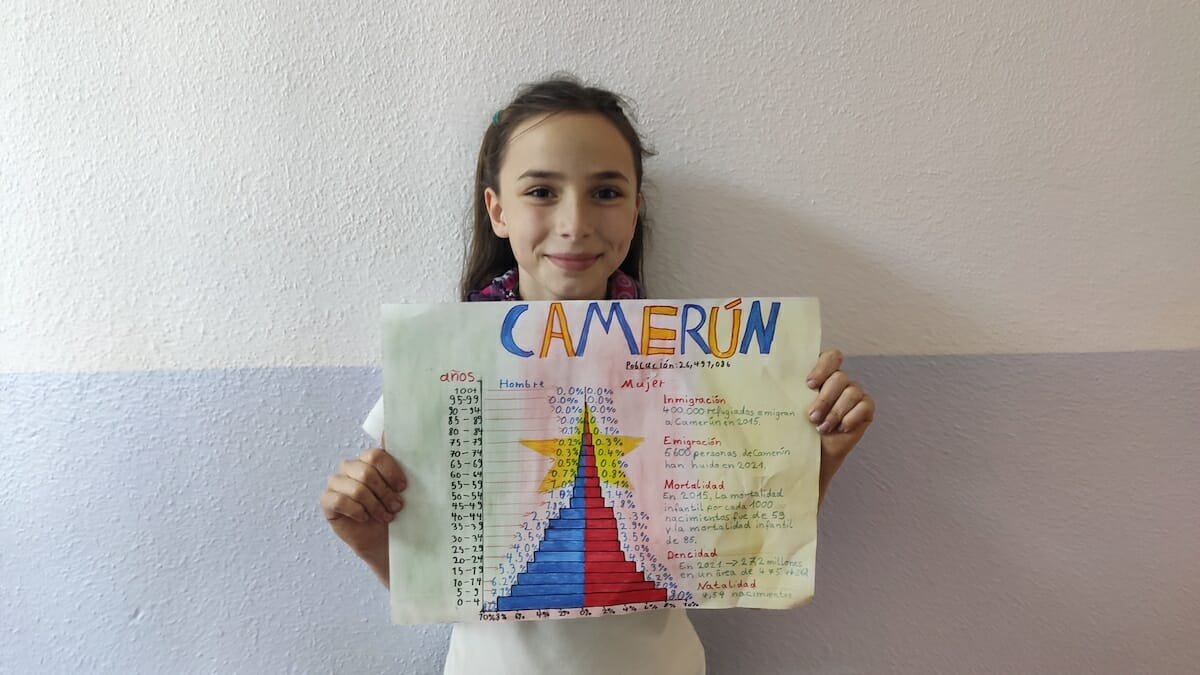 CAMERÚN
Población: 26,491,086
años
Hombre
Mujer
100+ 0.0% 0.0%
95-99 0.0% 0.0%
90-94 0.0% 0.0%
85-89 0.0% 0.1%
80-84 0.1% 0.1%
75-79 0.2% 0.3%
70-74 0.3% 0.4%
65-69 0.5% 0.6%
60-64 0.7% 0.8%
55-59 1.0% 1.1%
50-54 1.4%
45-49 1.8% 1.8%
40-44 2.2% 2.3%
35-39 2.8% 2.9%
30-34 3.5% 3.5%
25-29 4.0% 4.0%
20-24 4.5% 4.5%
15-19 5.3% 5.3%
10-14 6.2% 6.2%
5-9 7.1% 7.0%
0-4 8.0%
10% 8% 6% 4% 2% 0% 2% 4% 6% 8% 10%
Inmigración
400.000 refugiados emigran
a Camerún en 2015.
Emigración
5600 personas de Camerín
han huido en 2021.
Mortalidad
En 2015, La mortalidad
infantil por cada 1000
nacimientos fue de 59
y la mortalidad infantil
de 85.
Dencidad
En 2021 → 27,2 millones
en un área de
Natalidad
4,54 nacimientos